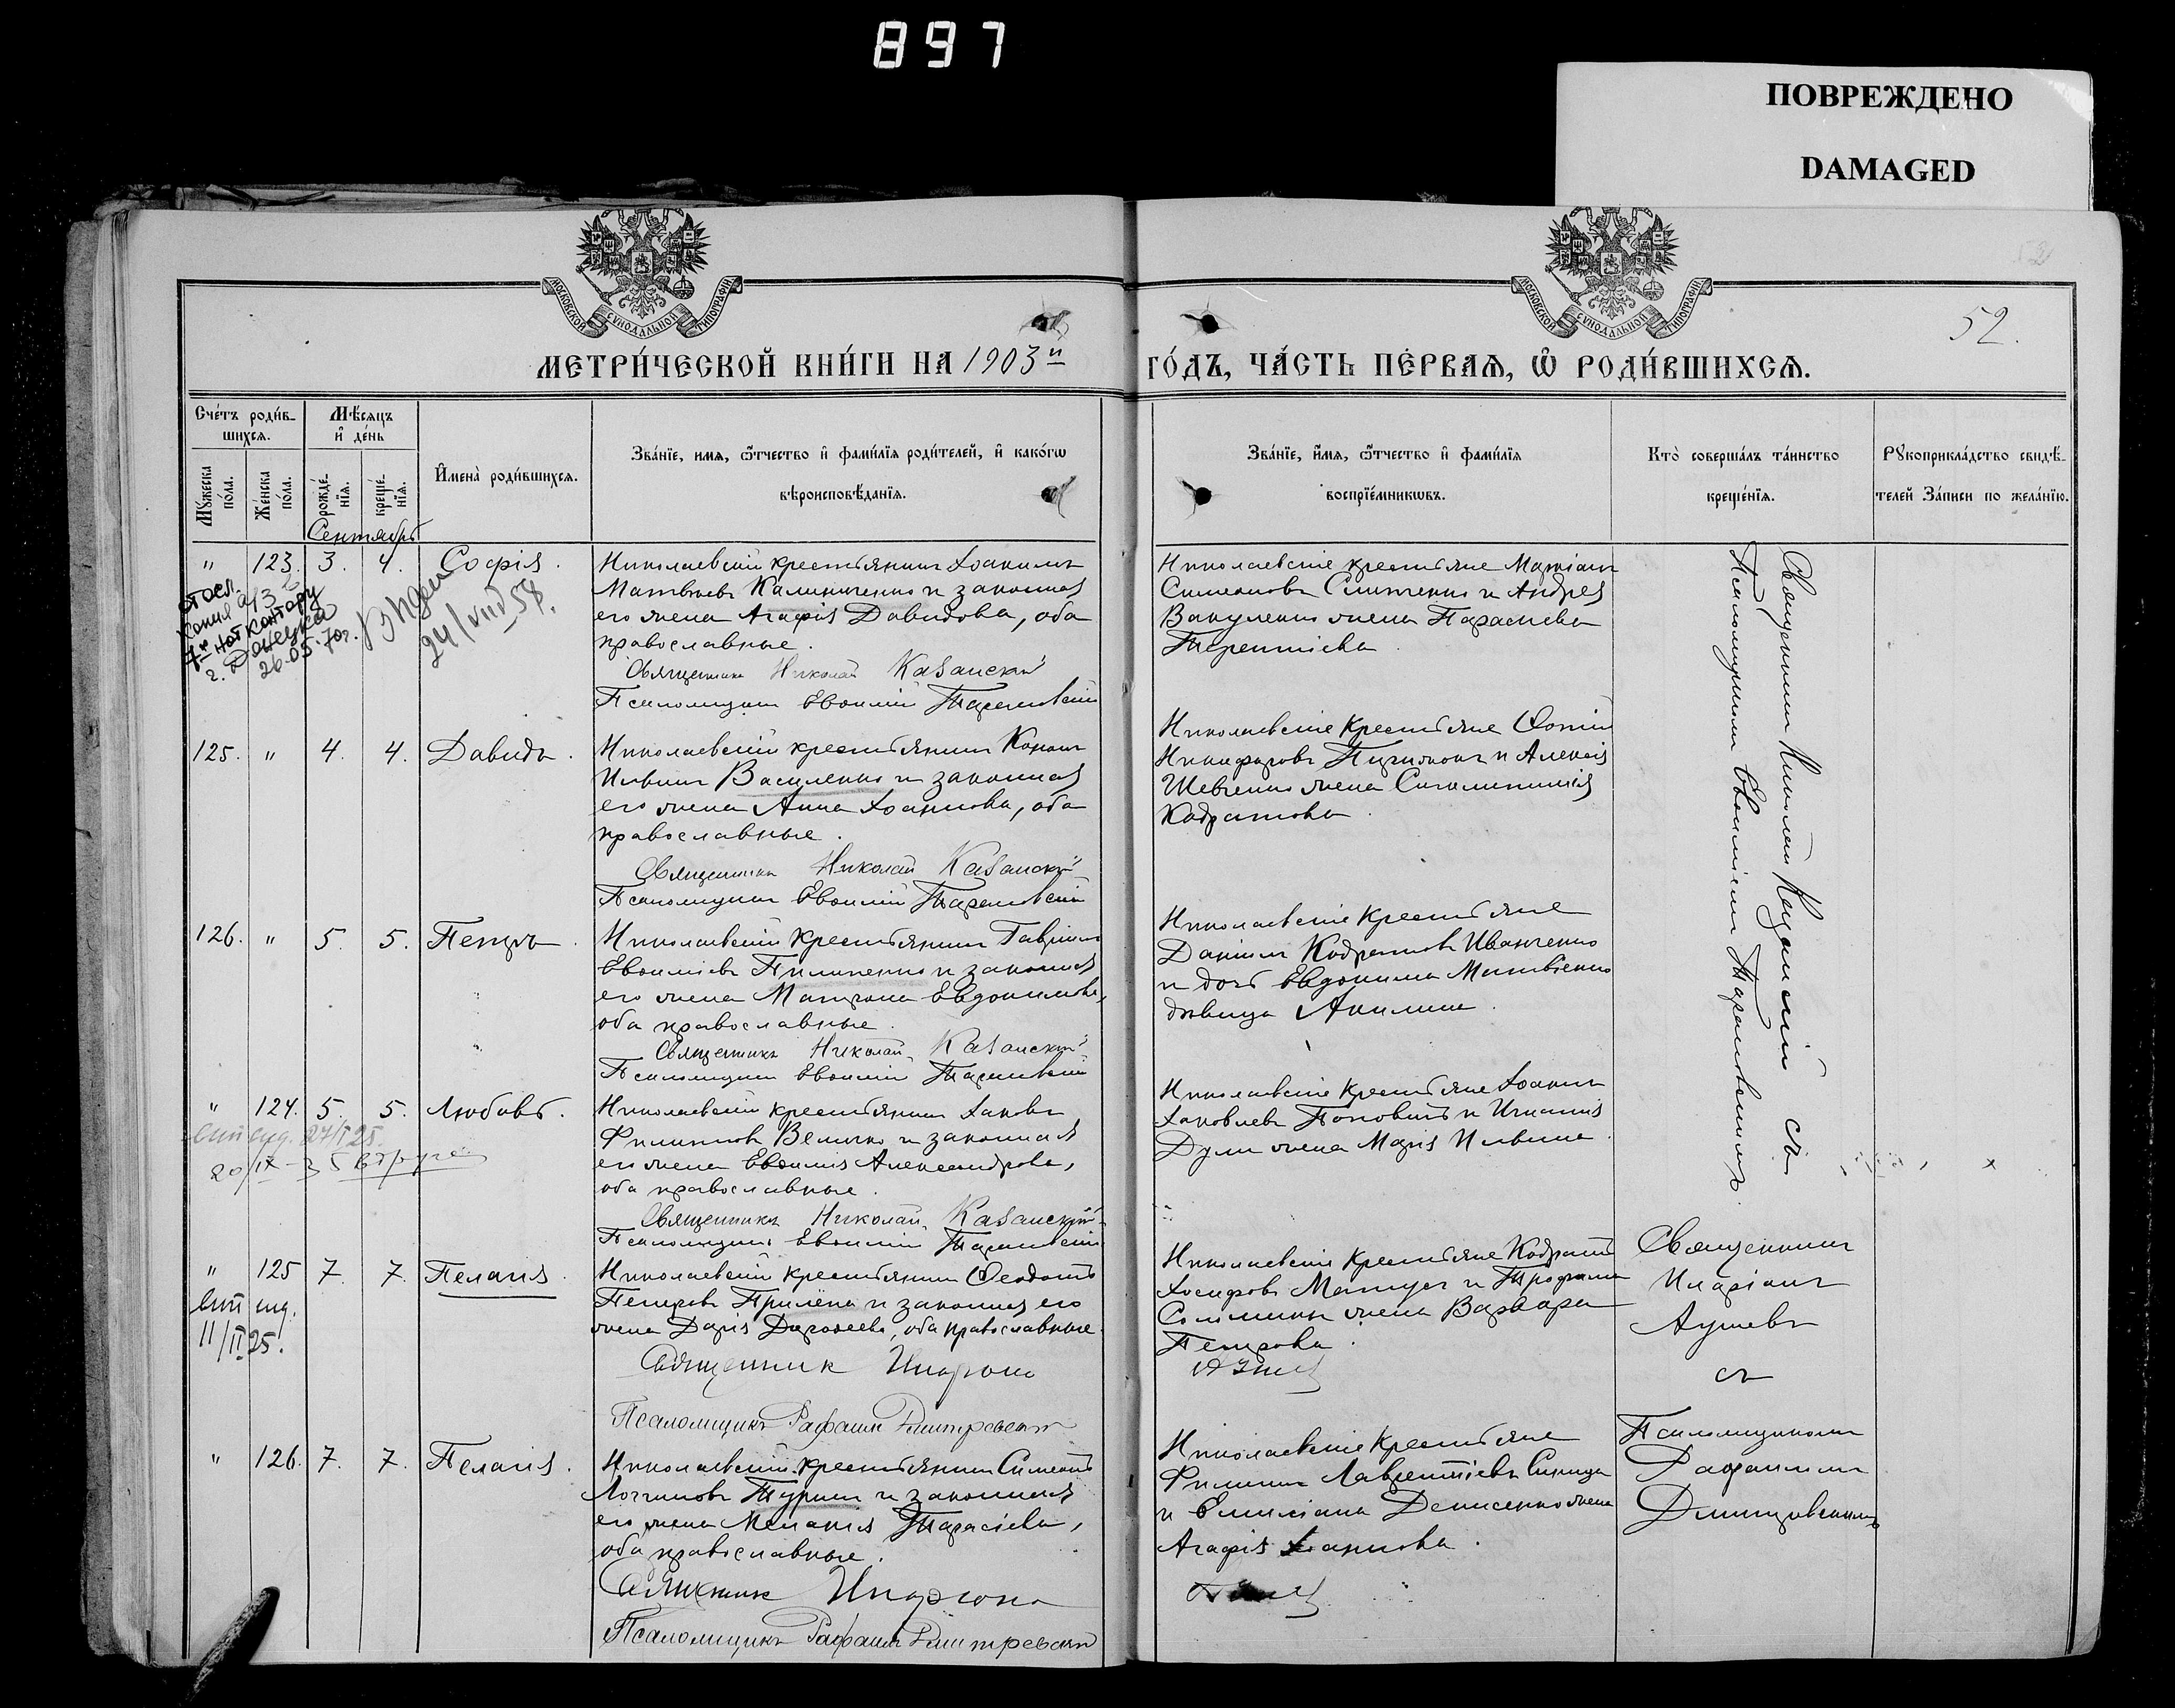 897
ПОВРЕЖДЕНО
DAMAGED
МОСКОВСКОЙ СѴНОДАЛЬНОЙ ТИПОГРАФІИ
МОСКОВСКОЙ СѴНОДАЛЬНОЙ ТИПОГРАФІИ
52.
МЕТРИ́ЧЕСКОЙ КНИ́ГИ НА 1903й ГО́ДЪ, ЧА́СТЬ ПЕ́РВАѦ, Ѡ҆ РОДИ́ВШИХСѦ.
Сче́тъ роди́в-
шихсѧ.
Мꙋ́жеска
по́ла.
Же́нска
по́ла.
Мѣ́сѧцъ
и҆ де́нь
рожде́-
нїѧ.
креще́-
нїѧ.
И҆мена̀ роди́вшихсѧ.
Зва́нїе, имѧ, ѻ҆́тчество и҆ фами́лїѧ роди́телей, и҆ како́гѡ
вѣроисповѣ́данїѧ.
Зва́нїе, и҆́мѧ, ѻ҆́тчество и҆ фами́лїѧ
воспрїе́мникѡвъ.
Кто̀ соверша́лъ та́инство
креще́нїѧ.
Рꙋкоприкла́дство свидѣ́-
телей За́писи по жела́нїю.
Сентябрь
" 123. 3. 4. Софія.
Николаевскій крестьянинъ Іоакимъ
Матвѣевъ Калиниченко и законная
его жена Агафія Давидова, оба
православные.
Священникъ Николай Казанскій
Псаломщикъ Евѳимій Тарановскій
Николаевскіе крестьяне Маркіанъ
Симеоновъ Слипченко и Андрея
Вакуленко жена Параскева
Терентіева
копия
7ю нот контору
г. Донецка
26.05.70г.
24/VIII 58.
125. " 4. 4. Давидъ.
Николаевскій крестьянинъ Кононъ
Ильинъ Василенко и законная
его жена Анна Іоаннова, оба
православные.
Священникъ Николай Казанскій
Псаломщикъ Евѳимій Тарановскій
Николаевскіе крестьяне Ѳома
Никифоровъ и Алексія
Шевченко жена Синклитикія
Кодратова
126. " 5. 5. Петръ.
Николаевскій крестьянинъ Гавріилъ
Евѳиміевъ Пилипенко и законная
его жена Матрона Евдокимова,
оба православные.
Священникъ Николай Казанскій
Псаломщикъ Евѳимій Тарановскій
Николаевскіе крестьяне
Даніилъ Кодратовъ Иванченко
и дочь Евдокима Матвіенко
дѣвица Акилина.
" 124. 5. 5. Любовь.
Николаевскій крестьянинъ Іаковъ
Филипповъ Величко и законная
его жена Евѳимія Александрова,
оба православные.
Священникъ Николай Казанскій
Псаломщикъ Евѳимій Тарановскій
Николаевскіе крестьяне Іоаннъ
Іаковлевъ Поповичъ и Игнатія
Дули жена Марія Ильина.
Священникъ Николай Казанскій съ
Псаломщикомъ Евѳиміемъ Тарановскимъ.
" 125 7. 7. Пелагія.
Николаевскій крестьянинъ Ѳеодотъ
Петровъ Прилепа и законная его
жена Дарія Дороѳеева, оба православные.
Священник Иларіонъ
Псаломщикъ Рафаилъ Дмитревскій
Николаевскіе крестьяне Кодратъ
Іосифовъ и Трофима
жена Варвара
Петрова.
Священникъ
Иларіонъ
съ
11/II 25.
" 126. 7. 7. Пелагія.
Николаевскій крестьянинъ Симеонъ
Логгиновъ и законная
его жена Меланія Тарасіева,
оба православные.
Священник Иларіонъ
Псаломщикъ Рафаилъ Дмитревскій
Николаевскіе крестьяне
Филиппъ Лаврентіевъ Синица
и Емиліана Денисенко жена
Агафія Іоаннова.
Псаломщикомъ
Рафаиломъ
Дмитровскимъ